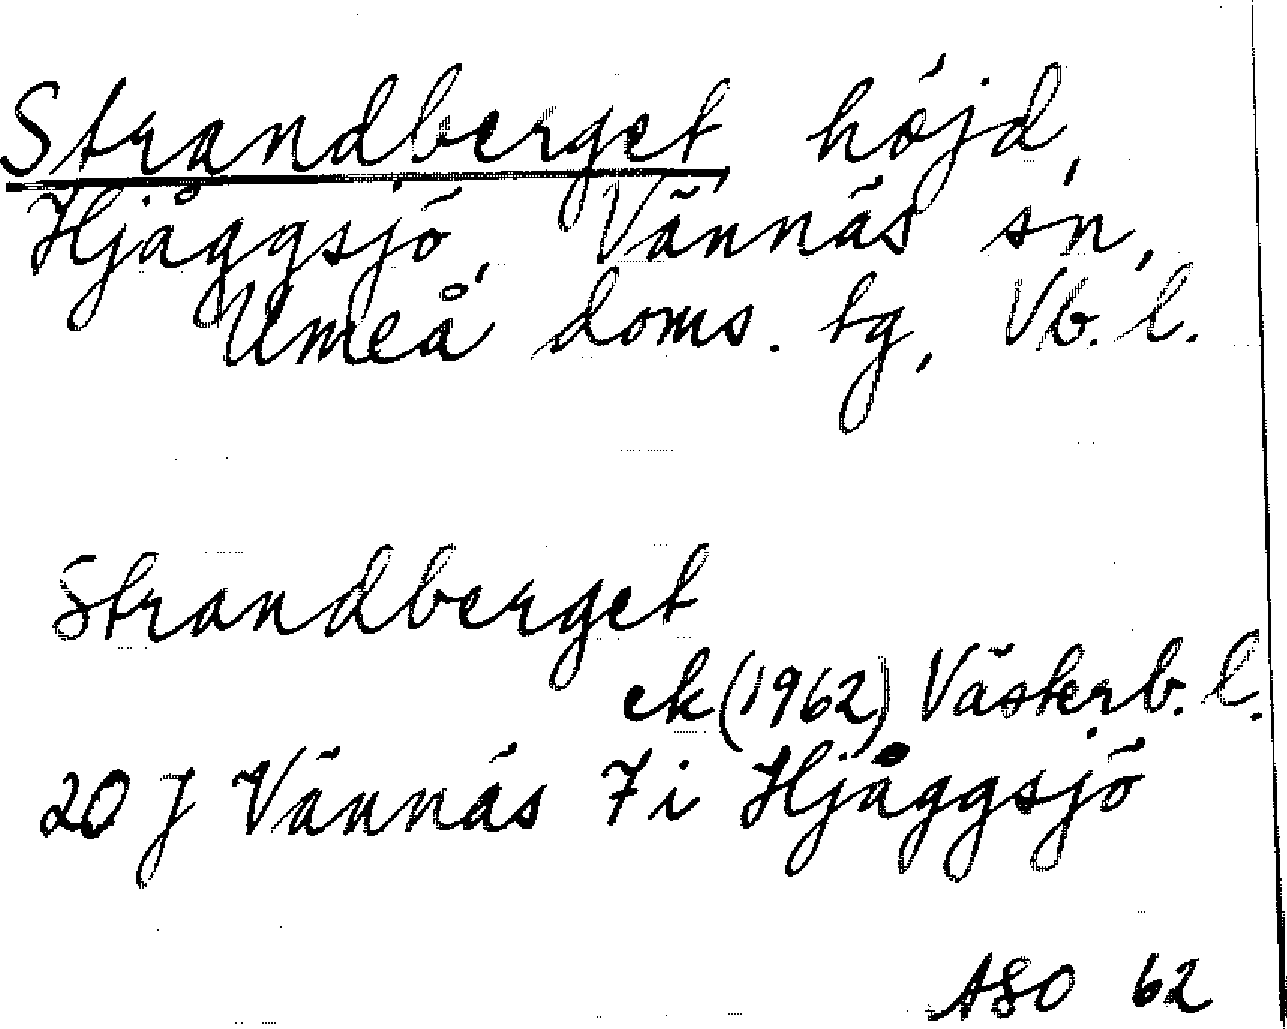 Strandberget, höjd,
Hjåggsjö, Vännäs sn,
Umeå doms. tg, Vb. l.
Strandberget
ek (1962) Västerb. l.
20 J Vännäs 7 i Hjåggsjö
ASO 62